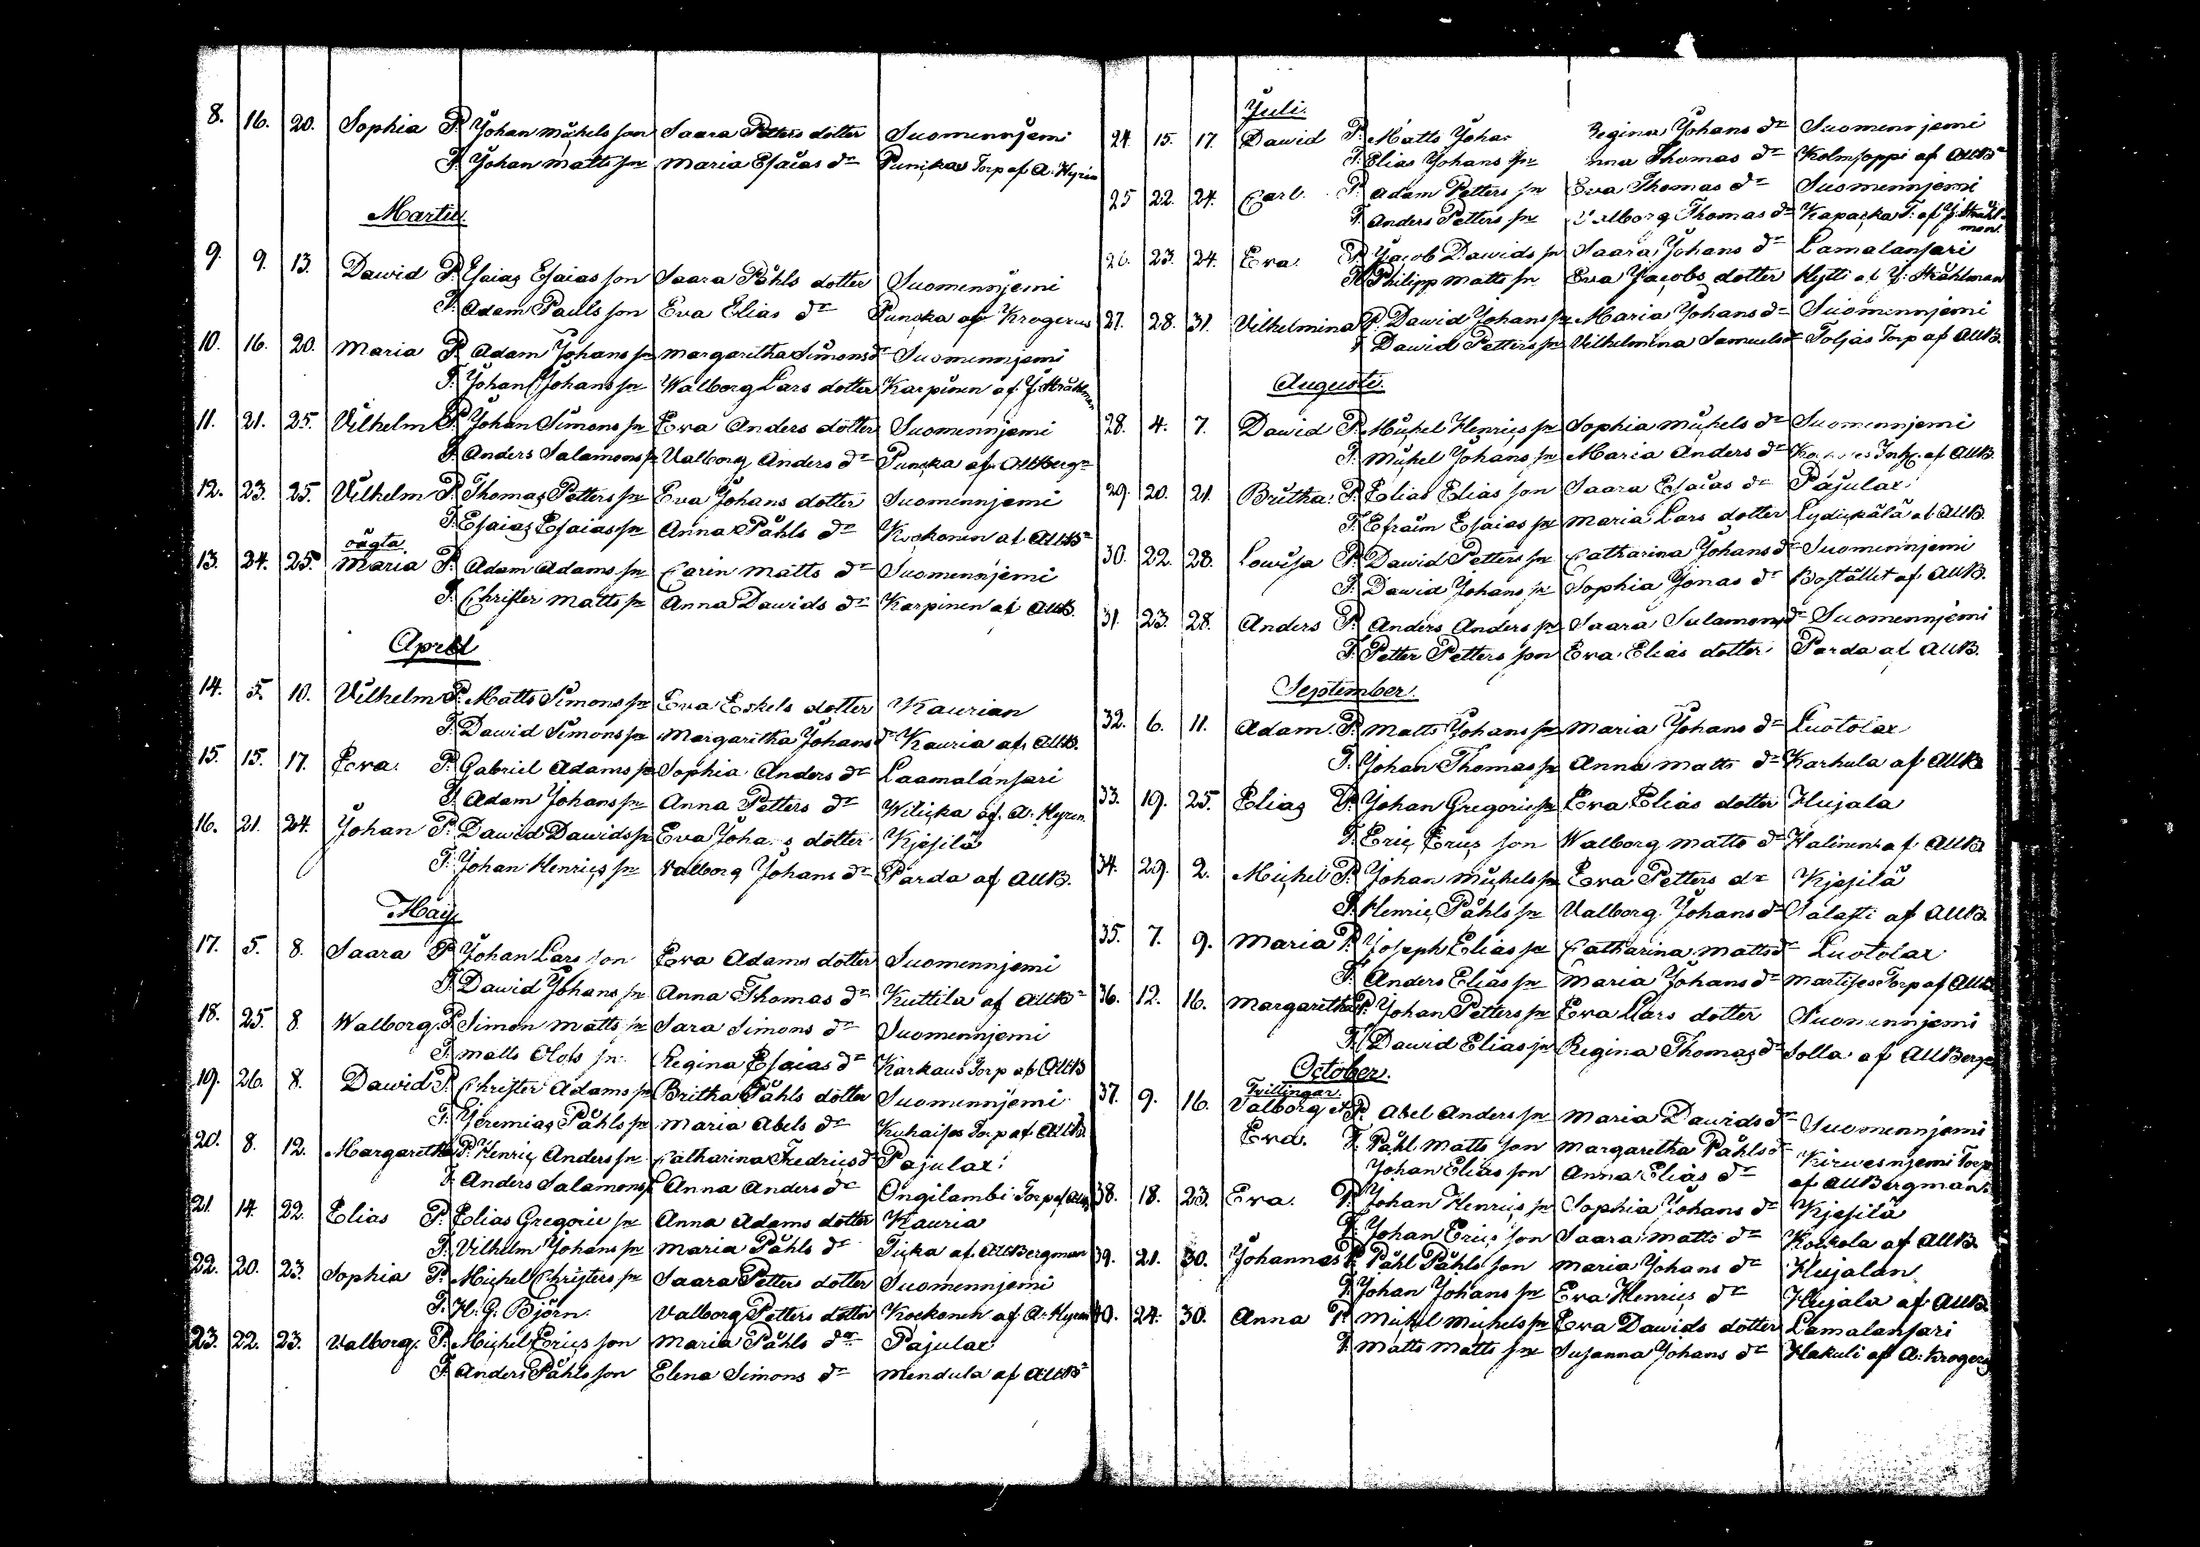 8. 16. 20. Sophia P. Johan Michels son Saara Petters dotter Suomennjemi
F. Johan Matts sn Maria Esaias dr Punckas Torp af A. Hyrin
Martii.
9. 9. 13. Dawid P. Esaias Esaias son Saara Påhls dotter Suomennjemi
F. Adam Pauls son Eva Elias dr Puncka af Krogerus
10. 16. 20. Maria P. Adam Johans sn Margaritha Simons dr Suomennjemi
F. Johan Johans sn Walborg Lars dotter Karpinen af J. Stråhlman
11. 21. 25. Vilhelm P. Johan Simons sn Eva Anders dotter Suomennjemi
F. Anders Salamons sn Valborg Anders dr Puncka af AUBergn
12. 23. 25. Vilhelm P. Thomas Petters sn Eva Johans dotter Suomennjemi
F. Esaias Esaias sn Anna Påhls dr Kockonen af AUB
oägta
13. 24. 25. Maria P. Adam Adams sn Carin Matts dr Suomennjemi
F. Christer Matts sn Anna Dawids dr Karpinen af AUB.
April
14. 5. 10. Vilhelm P. Matts Simons sn Eva Eskels dotter Kaurian
F. Dawid Simons sn Margaritha Johans dr Kauria af AUB.
15. 15. 17. Eva. P. Gabriel Adams sn Sophia Anders dr Laamalansari
F. Adam Johans sn Anna Petters dr Wilicka af A. Hyren
16. 21. 24. Johan P. Dawid Dawids sn Eva Joha s dotter Kjesilä
F. Johan Henrics sn Valborg Johans dr Parda af AUB.
Maij
17. 5. 8. Saara P. Johan Lars son Eva Adams dotter Suomennjemi
F. Dawid Johans sn Anna Thomas dr Kuttila af AUB
18. 25. 8. Walborg P. Simon Matts sn Sara Simons dr Suomennjemi
F. Matts Olofs sn Regina Esaias dr Karkaus Torp af AUB
19. 26. 8. Dawid P. Christer Adams sn Britha Påhls dotter Suomennjemi
F. Jeremias Påhls sn Maria Abels dr Kukaises Torp af AUB
20. 8. 12. Margaretha P. Henric Anders sn Catharina Fredrics d Pajulax
F. Anders Salamons Anna Anders dr Ongilambi Torp af AUB
21. 14. 22. Elias P. Elias Gregorii sn Anna Adams dotter Kauria
F. Vilhelm Johans sn Maria Påhls dr Ticka af AUBergman
22. 20. 23. Sophia P. Michel Christers sn Saara Petters dotter Suomennjemi
F. H. G. Björn. Valborg Petters dotter Kockoneh af A. Hyren
23. 22. 23. Valborg. P. Michel Erics son Maria Påhls dr Pajulax
F. Anders Påhls son Elena Simons dr Mendula af AUB
Juli.
24. 15. 17. Dawid P. Matts Johan Regina Johans dr Suomennjemi
F. Elias Johans sn nna Thomas dr Kolmsoppi af AUB
25 22. 24. Carl. P. Adam Petters sn Eva Thomas dr Suomennjemi
F. Anders Petters sn Valborg Thomas dr Kapacka T. af J. Stråhlman.
26. 23. 24. Eva. P. Jacob Dawids sn Saara Johans dr Lamalansari
F. Philipp Matts sn Eva Jacobs dotter Hytti af J. Stråhlman
27. 28. 31. Vilhelmina P. Dawid Johans sn Maria Johans dr Suomennjemi
F. Dawid Petters sn Vilhelmina Samuels dr Toljas Torp af AUB.
Augusti.
28. 4. 7. Dawid P. Michel Henrics sn Sophia Michels dr Suomennjemi
F. Michel Johans sn Maria Anders dr af AUB.
29. 20. 21. Britha. P. Elias Elias son Saara Esaias dr Pajulax
F. Efraim Esaias sn Maria Lars dotter Lydickälä af AUB.
30. 22. 28. Lowisa P. Dawid Petters sn Catharina Johans dr Suomennjemi
F. Dawid Johans sn Sophia Jonas dr Bostället af AUB.
31. 23. 28. Anders P. Anders Anders sn Saara Salamons dr Suomennjemi
F. Petter Petters son Eva Elias dotter Parda af AUB.
September.
32. 6. 11. Adam. P. Matts Johans sn Maria Johans dr Luotolax
F. Johan Thomas sn Anna Matts dr Karhula af AUB
33. 19. 25. Elias P. Johan Gregorii sn Eva Elias dotter Hujala
F. Eric Erics son Walborg Matts dr Halinen af AUB
34. 29. 2. Michel P. Johan Michels sn Eva Petters dr Kjesilä
F. Henric Påhls sn Valborg Johans dr Salasti af AUB
35. 7. 9. Maria P. Joseph Elias sn Catharina Matts dr Luotolax
F. Anders Elias sn Maria Johans dr Martises Torp af AUB
36. 12. 16. Margaretha P. Johan Petters sn Eva Lars dotter Suomennjemi
F. Dawid Elias sn Regina Thomas dr Solla af AUBerg
October.
Tvillingar.
37. 9. 16. Valborg et P. Abel Anders sn Maria Dawids dr Suomennjemi
Eva. F. Påhl Matts son Margaretha Påhls d Kirwesnjemi Torp
Johan Elias son Anna Elias dr af AUBergman.
38. 18. 23. Eva. P. Johan Henrics sn Sophia Johans dr Kjesilä
F. Johan Erics son Saara Matts dr Kockola af AUB.
39. 21. 30. Johannes P. Påhl Påhls son Maria Johans dr Hujalan
F. Johan Johans sn Eva Henrics dr Hujala af AUB
40. 24. 30. Anna P. Michel Michels sn Eva Dawids dotter Lamalansari
F. Matts Matts sn Susanna Johans dr Hakuli af A. Krogerus